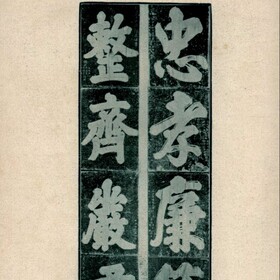 忠孝廉
整齊嚴